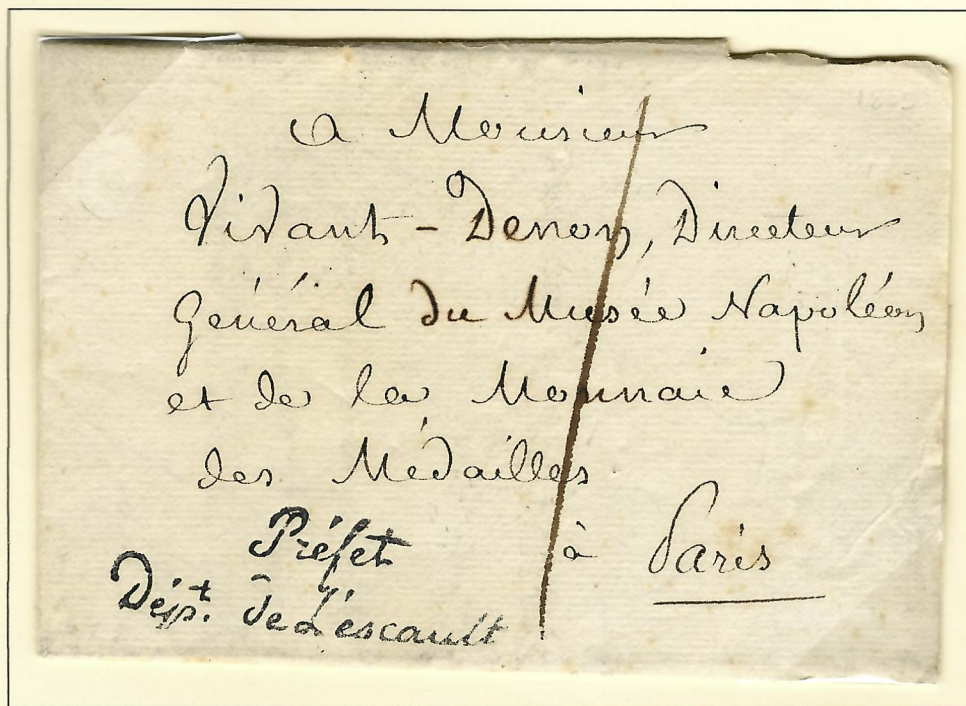 a Monsieur
Vivant-Denon, Directeur
Général du Musée Napoléon
et de la Monnaie
des Médailles
à Paris
Préfet
Dépt. de L'escault